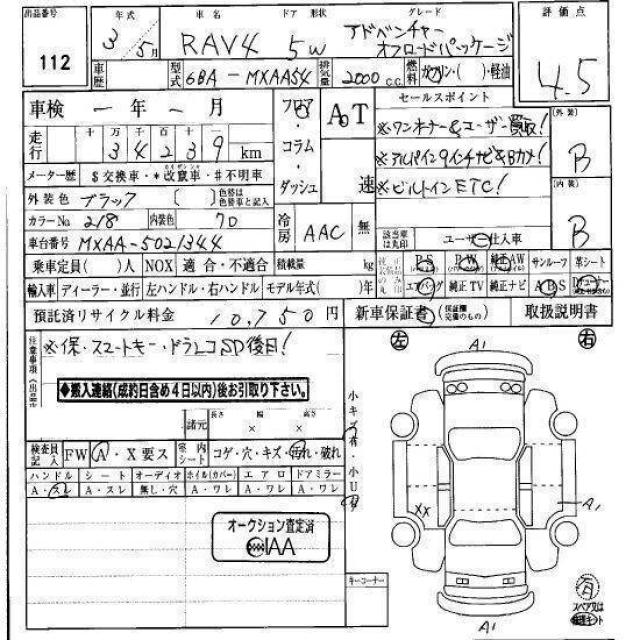 出品番号
112
年式
3 年 5 月
車名 ドア 形状 グレード
RAV4 5W アドベンチャー
オフロードパッケージ
評価点
4.5
車歴
型式 6BA-MXAA54
排気量 2000 c.c.
燃料 ガソリン・( )・軽油
車検 一 年 一 月
フロア・コラム・ダッシュ
AT
速
セールスポイント
※ワンオーナー&ユーザー買取!
※アルパイン9インチナビ&Bカメ!
※ビルトインETC!
(外装)
B
(内装)
B
走行 十 万 千 百 十 一
3 4 2 3 9 km
メーター歴 $交換車・*改竄車・#不明車
外装色 ブラック 〔 〕 色替は色替車と記入
カラーNo 218 内装色 70
冷房 AAC 無
車台番号 MXAA-5021344
該当車は丸印 ユーザー・仕入車
乗車定員( )人 NOX 適合・不適合 積載量 kg
純正 P/S P/W 純正AW サンルーフ 革シート
輸入車 ディーラー・並行 左ハンドル・右ハンドル モデル年式( )年
エアバッグ 純正TV 純正ナビ ABS
預託済リサイクル料金 10,750円
新車保証書 (保証欄完備のもの) 取扱説明書
注意事項
※保・スマートキー・ドラレコSD後日!
◆搬入連絡(成約日含め4日以内)後お引取り下さい。
諸元 長さ 幅 高さ
× ×
検査員記入 FW A・X要ス 室内シート コゲ・穴・キズ・汚れ・破れ
ハンドル シート オーディオ ホイル(カバー) エアロ ドアミラー
A・スレ A・スレ 無し・穴 A・ワレ A・ワレ A・ワレ
小キズ有・小U有
オークション査定済
IAA
キーコーナー
左 右
A1
XX
A1
A1
有
スペア又は
修理キット